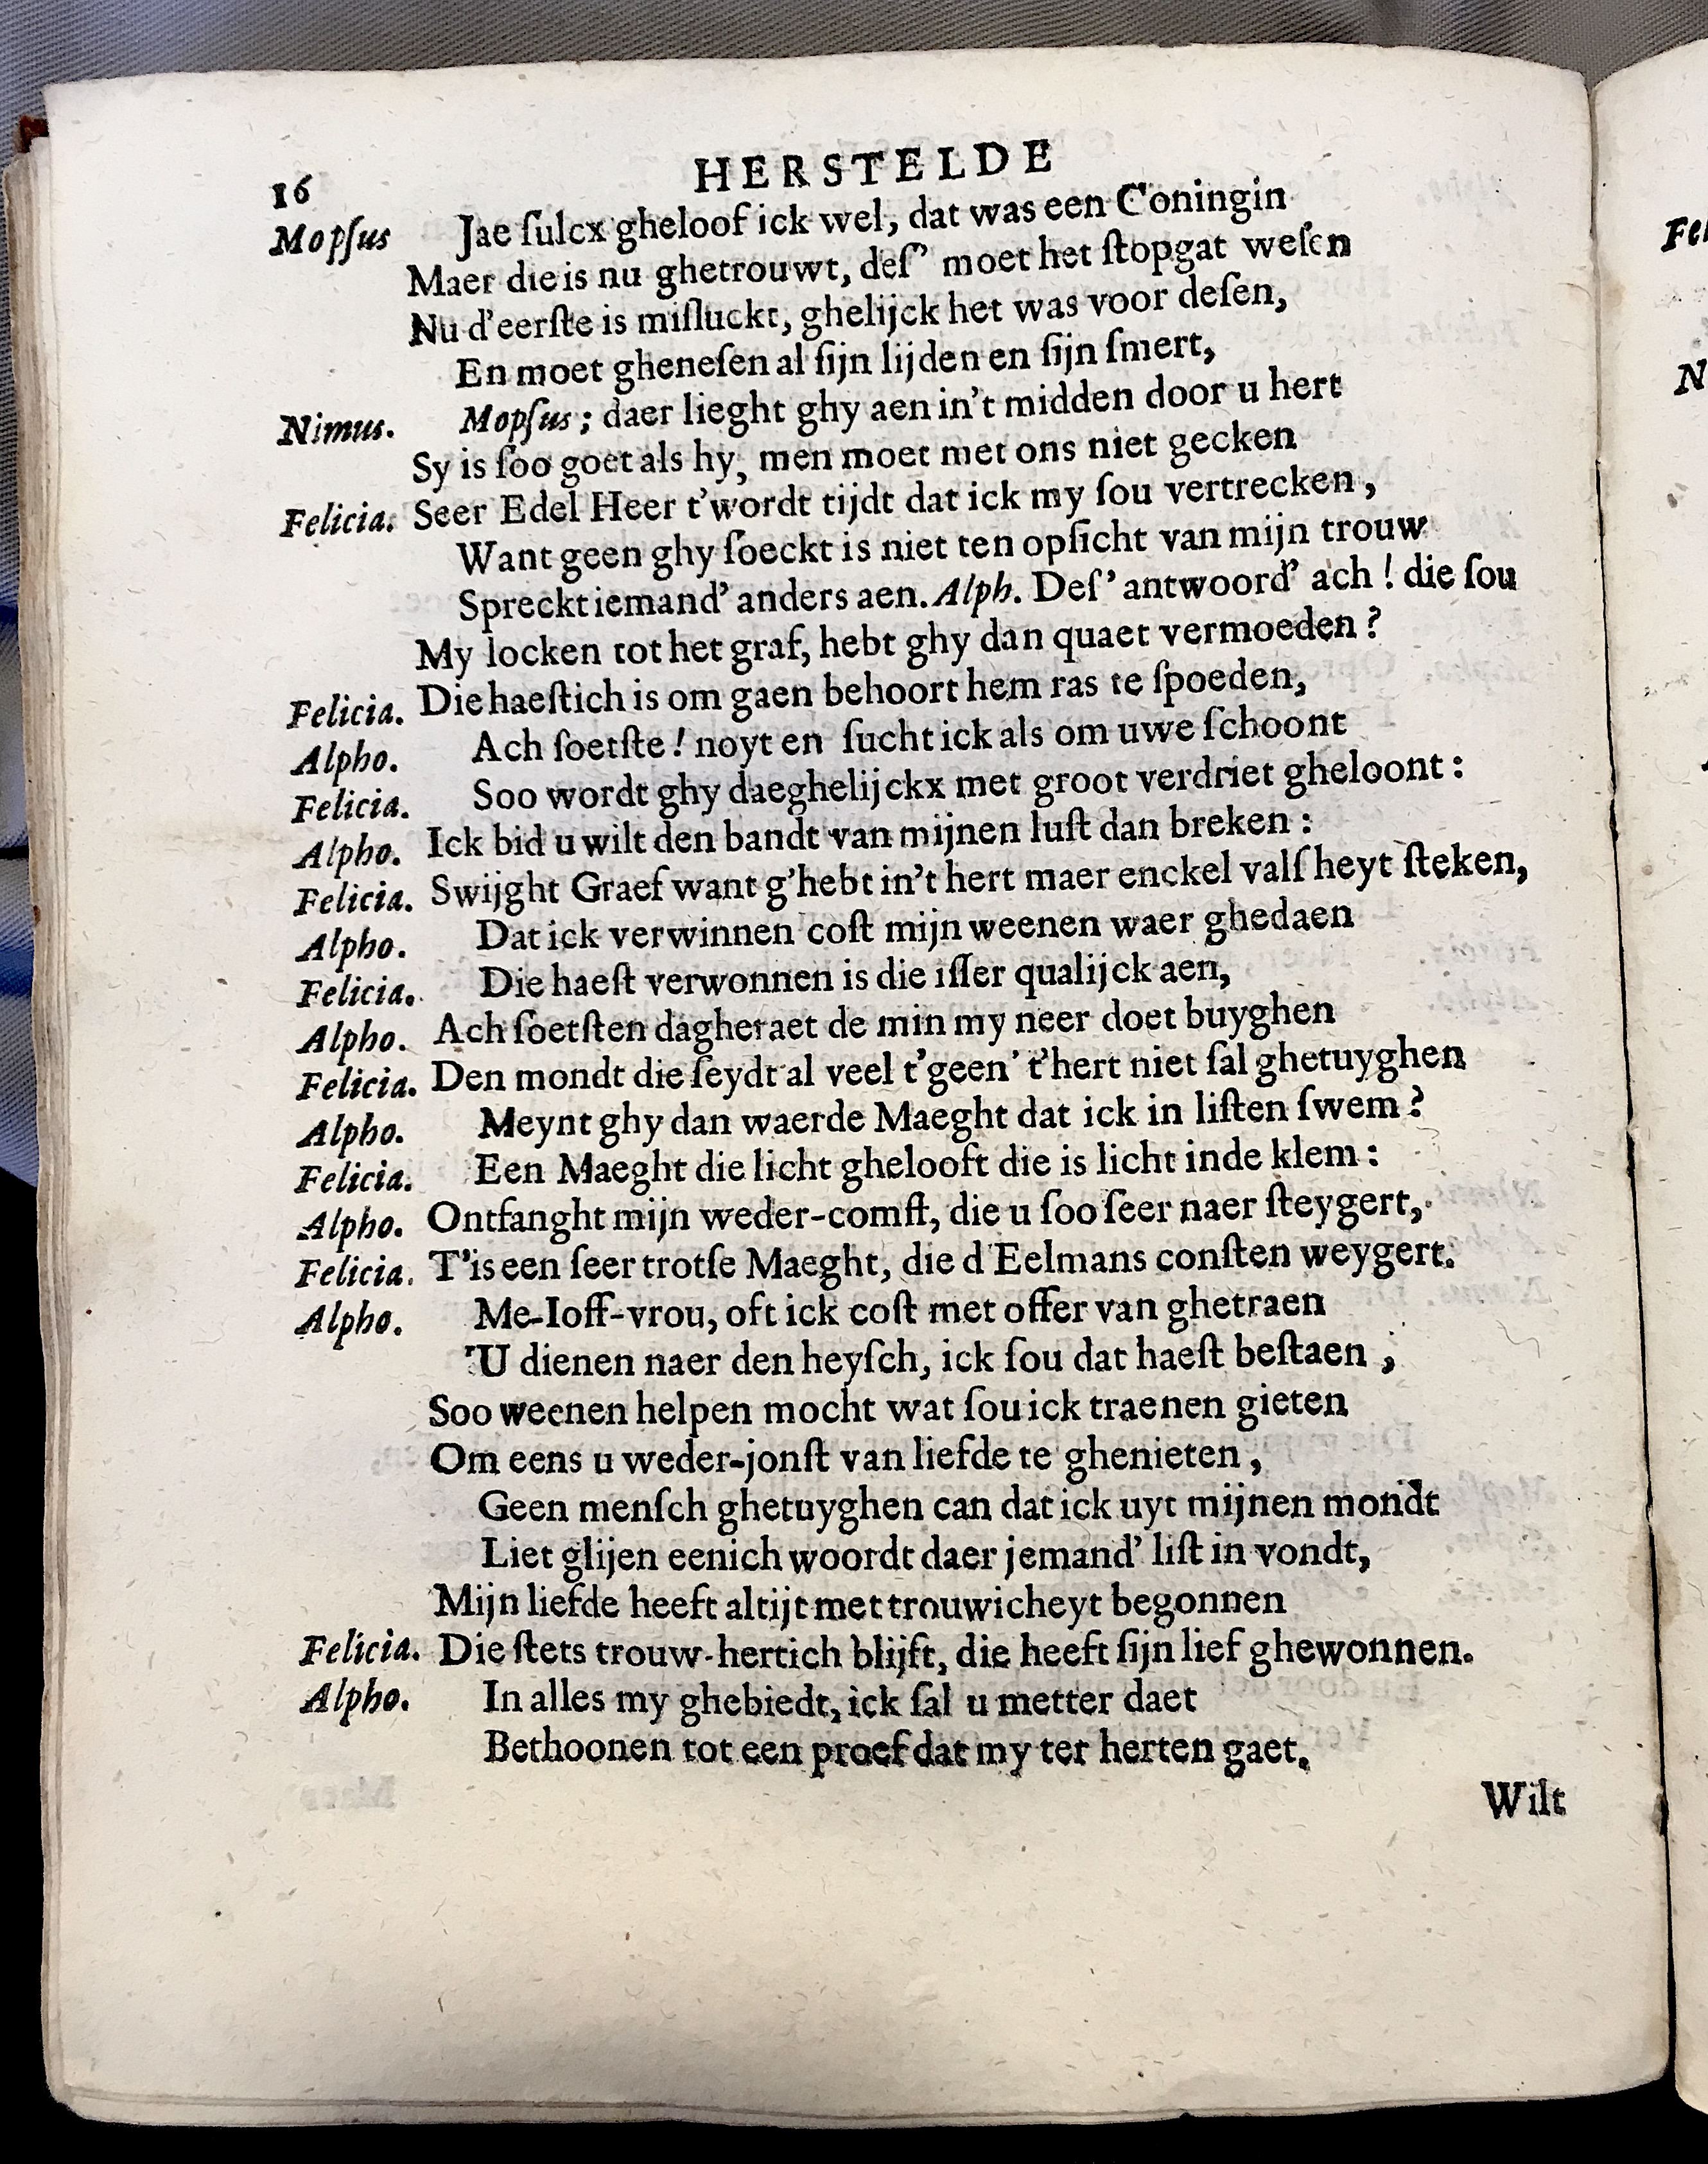 16 HERSTELDE
Mopſus Jae ſulcx gheloof ick wel, dat was een Coningin
Maer die is nu ghetrouwt, deſ’ moet het ſtopgat weſen
Nu d’eerſte is miſluckt, ghelijck het was voor deſen,
En moet gheneſen al ſijn lijden en ſijn ſmert,
Nimus. Mopſus; daer lieght ghy aen in’t midden door u hert
Sy is ſoo goet als hy, men moet met ons niet gecken
Felicia. Seer Edel Heer t’wordt tijdt dat ick my ſou vertrecken,
Want geen ghy ſoeckt is niet ten opſicht van mijn trouw
Spreckt iemand’ anders aen. Alph. Deſ’ antwoord’ ach! die ſou
My locken tot het graf, hebt ghy dan quaet vermoeden?
Felicia. Die haeſtich is om gaen behoort hem ras te ſpoeden,
Alpho. Ach ſoetſte! noyt en ſucht ick als om uwe ſchoont
Felicia. Soo wordt ghy daeghelijckx met groot verdriet gheloont:
Alpho. Ick bid u wilt den bandt van mijnen luſt dan breken:
Felicia. Swijght Graef want g’hebt in’t hert maer enckel valſheyt ſteken,
Alpho. Dat ick verwinnen coſt mijn weenen waer ghedaen
Felicia. Die haeſt verwonnen is die iſſer qualijck aen,
Alpho. Ach ſoetſten dagheraet de min my neer doet buyghen
Felicia. Den mondt die ſeydt al veel t’geen’ t’hert niet ſal ghetuyghen
Alpho. Meynt ghy dan waerde Maeght dat ick in liſten ſwem?
Felicia. Een Maeght die licht ghelooft die is licht inde klem:
Alpho. Ontfanght mijn weder-comſt, die u ſoo ſeer naer ſteygert,
Felicia. T’is een ſeer trotſe Maeght, die d'Eelmans conſten weygert.
Alpho. Me-Ioff-vrou, oft ick coſt met offer van ghetraen
U dienen naer den heyſch, ick ſou dat haeſt beſtaen;
Soo weenen helpen mocht wat ſou ick traenen gieten
Om eens u weder-jonſt van liefde te ghenieten,
Geen menſch ghetuyghen can dat ick uyt mijnen mondt
Liet glijen eenich woordt daer jemand’ liſt in vondt,
Mijn liefde heeft altijt met trouwicheyt begonnen
Felicia. Die ſtets trouw-hertich blijft, die heeft ſijn lief ghewonnen.
Alpho. In alles my ghebiedt, ick ſal u metter daet
Bethoonen tot een proef dat my ter herten gaet.
Wilt